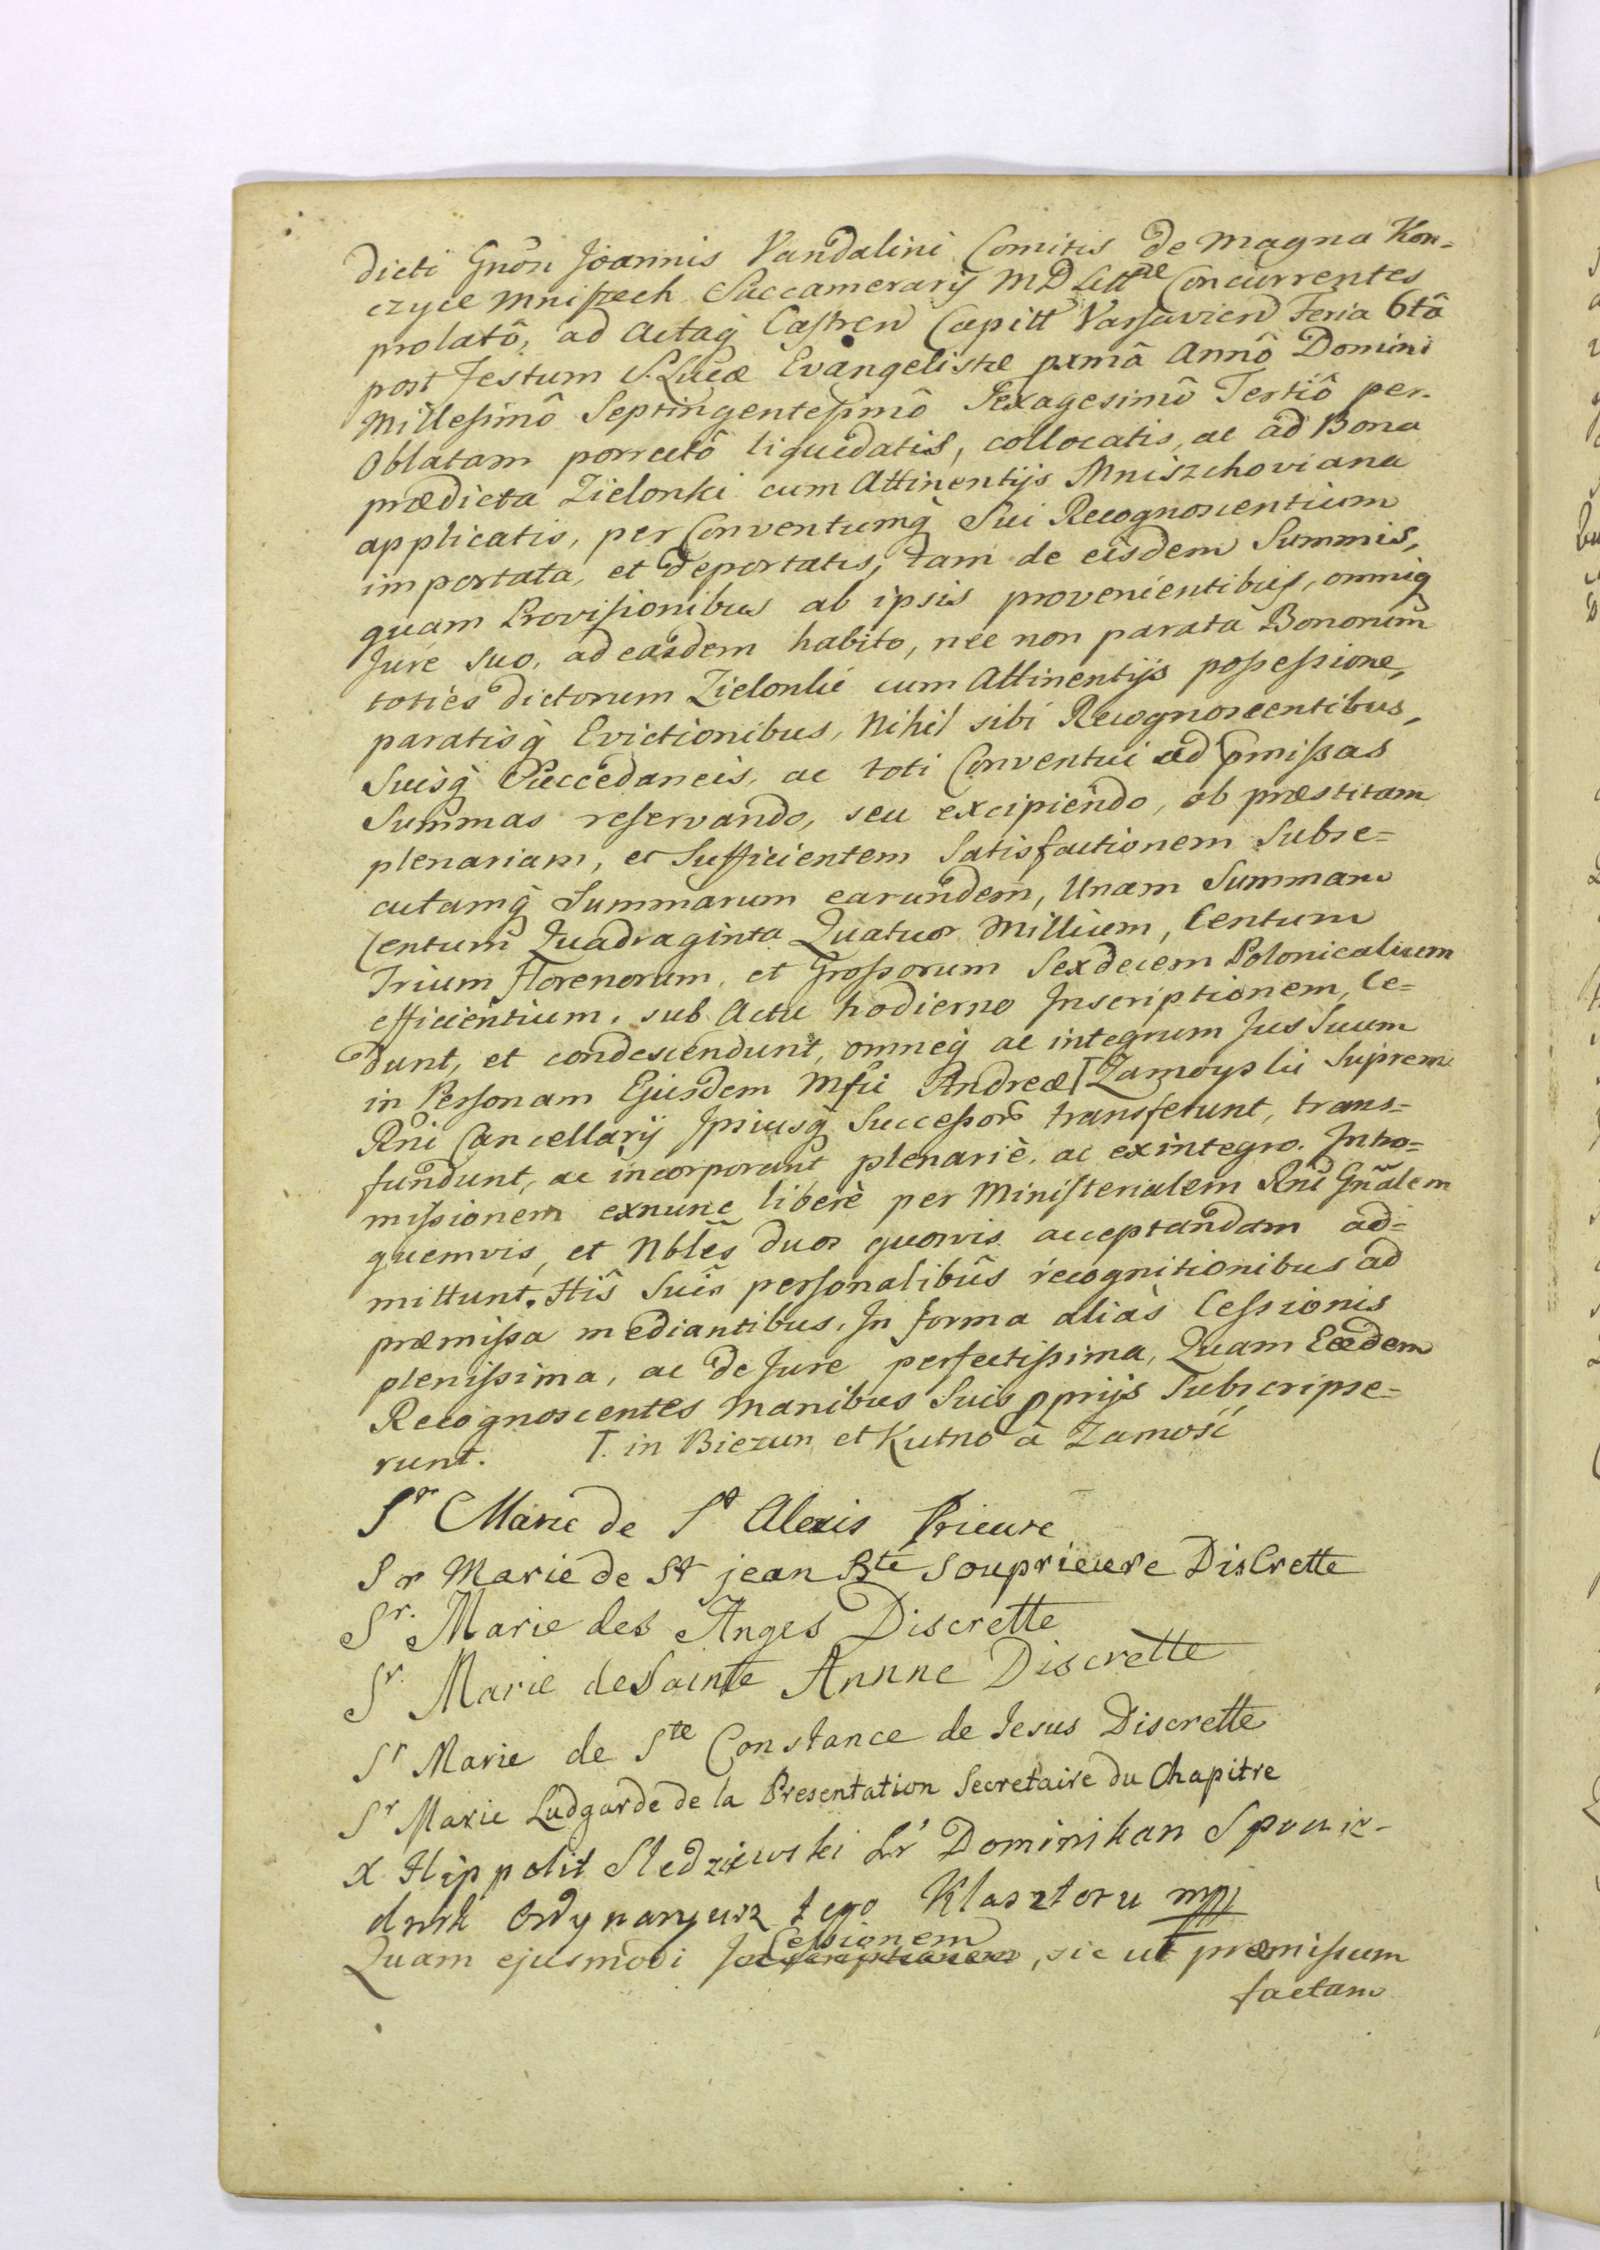 dicti Gnôsi Joannis Vandalini Comitis de Magna Kon-
czyce Mniszech Succamerarij M D Litt^ae Concurrentes
prolatô, ad Actaq̃ Castren Capitt Varsavien Feria 6tâ
post Festum S. Lucæ Evangelistæ pxmâ Annô Domini
Millesimô Septingentesimô Sexagesimô Tertiô per-
Oblatam porrectô liquidatis, collocatis, ac ad Bona
prædicta Zielonki cum Attinentijs Mniszchoviana
applicatis, per Conventumq̃ Sui Recognoscentium
importata, et deportatis, tam de eisdem Summis,
quam Provisionibus ab ipsis provenientibus, omniq̃
Jure suo, ad easdem habito, nec non parata Bonorum
toties dictorum Zielonki cum Attinentijs possessione,
paratisq̃ Evictionibus, Nihil sibi Recognoscentibus,
Suisq̃ Succedaneis, ac toti Conventui ad pmissas
Summas reservando, seu excipiendo, ob præstitam
plenariam, et Sufficientem Satisfactionem Subse-
cutamq̃ Summarum earundem, Unam Summam
Centum Quadraginta Quatuor Millium, Centum
Trium Florenorum, et Grossorum Sexdecem Polonicalium
efficientium, sub Actu hodierno Inscriptionem, Ce-
dunt, et condescendunt, omneq̃ ac integrum Jus Suum
in Personam Ejusdem Mfci Andreæ T Zamoyski Suprem
Rñi Cancellarij Ipsiusq̃ Successorũ transferunt, trans-
fundunt, ac incorporant plenariè, ac exintegro. Intro-
missionem exnunc liberè per Ministerialem Rñi Gñalem
quemvis, et Nbles duos quosvis acceptandam ad-
mittunt. Hîs Suîs personalibûs recognitionibus ad
præmissa mediantibus, In forma aliàs Cessionis
plenissima, ac de Jure perfectissima, Quam Eædem
Recognoscentes Manibus Suis pprijs Subscripse-
runt. T. in Biezun et Kutno à Zamość
S^r Marie de S^t Alexis Prieure
Sr Marie de St jean Bte Souprieure DisCrette
S^r. Marie des Anges Discrette
S^r Marie de Sainte Annne Discrette
S^r Marie de S^te Constance de Jesus Discrette
S^r Marie Ludgarde de la Presentation Secretaire du Chapitre
X Hippolit Sledziewski Lr Dominikan Spowie-
dnik Ordynaryusz tego Klasztoru mpp
Quam ejusmodi Cessionem, sic ut præmissum
factam